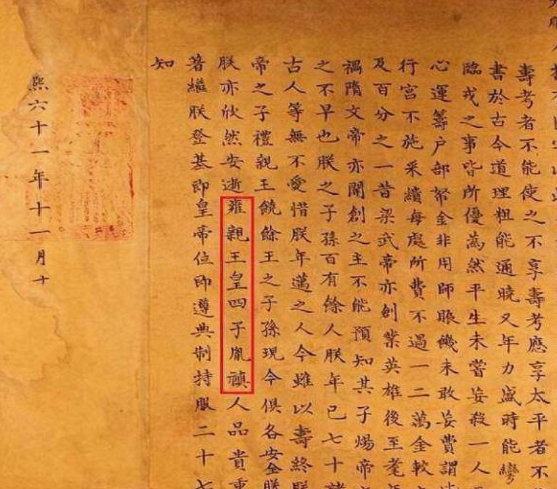 壽考者不能使之不享壽考應享太平者不
書於古今道理粗能通曉又年力盛時能彎
臨戎之事皆所優為然平生未嘗妄殺一人
心運籌户部帑金非用師賑饑未敢妄費謂
行宮不施采繢每處所費不過一二萬金較
及百分之一昔梁武帝亦創業英雄後至耄
禍隋文帝亦開創之主不能預知其子煬帝
之不早也朕之子孫百有餘人朕年已七十諸
古人等無不愛惜朕年邁之人今雖以壽終朕
帝之子禮親王饒餘王之子孫現今俱各安全朕
朕亦欣然安逝雍親王皇四子胤禛人品貴重
著繼朕登基即皇帝位即遵典制持服二十七
知
熙六十一年十一月十